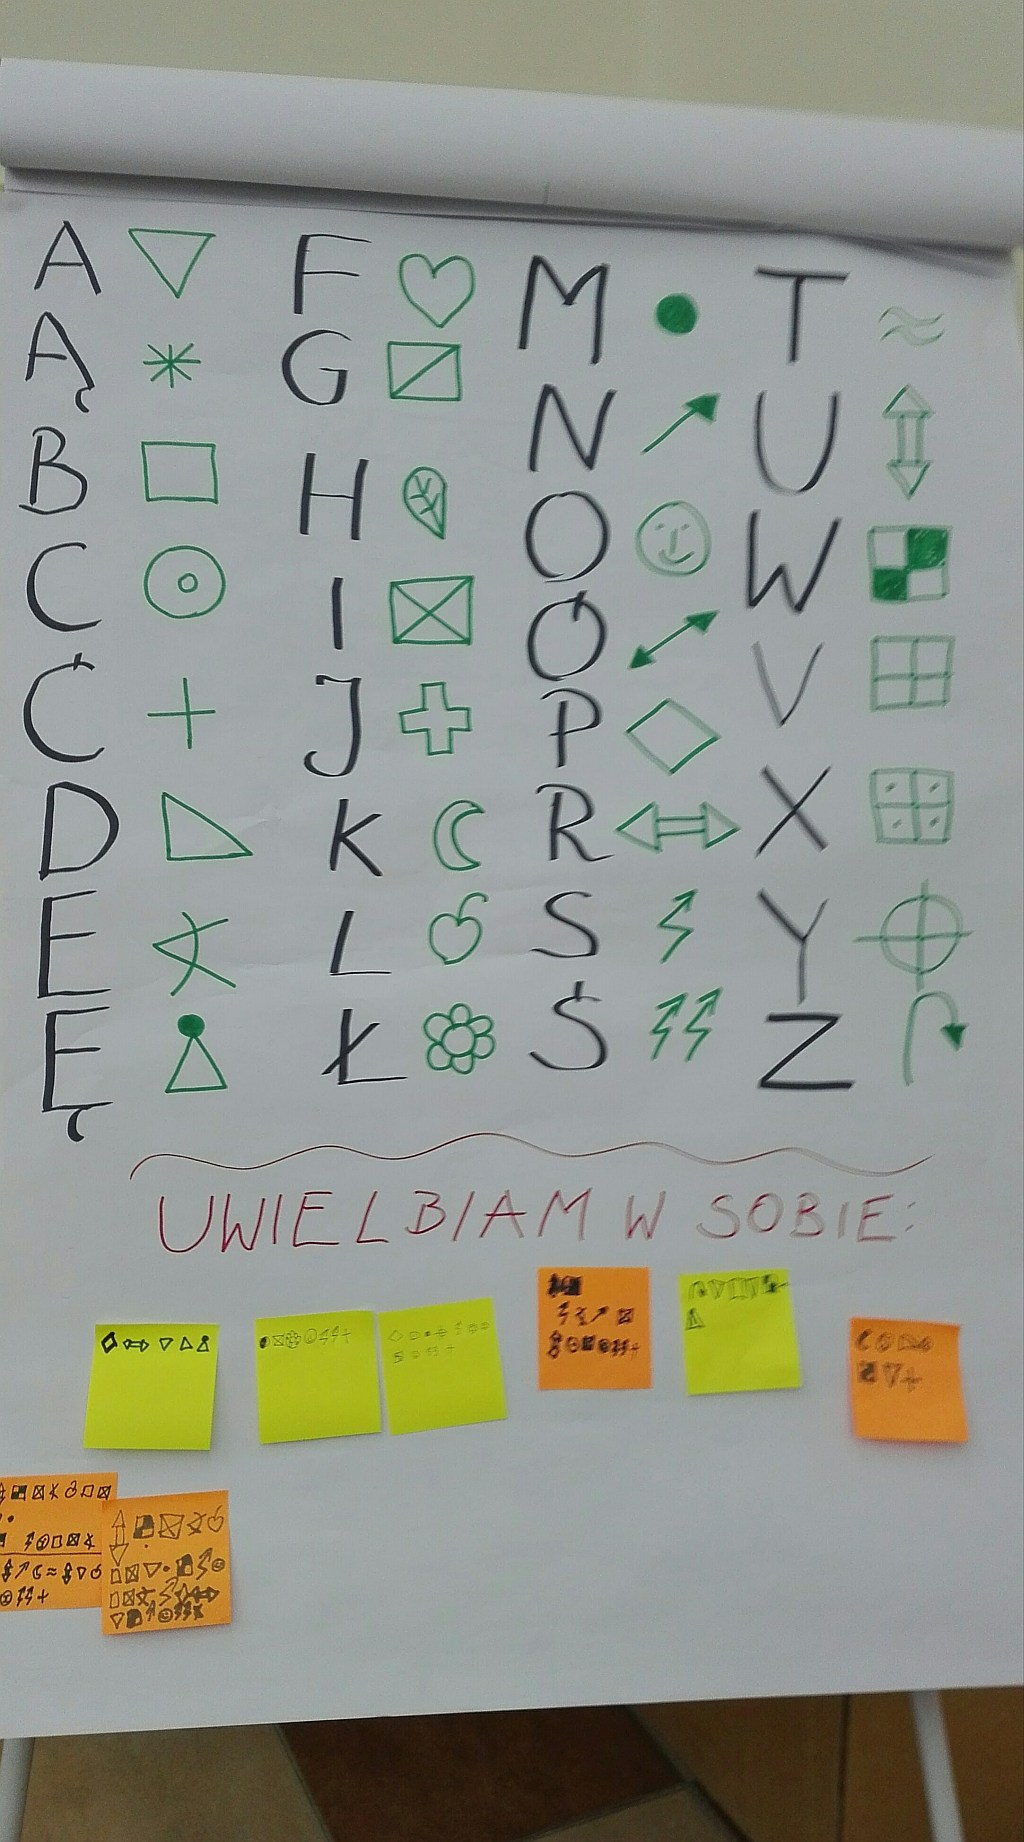 A F M T
Ą G N U
B H O W
C I Ó V
Ć J P X
D K R Y
E L S Z
Ę Ł Ś
UWIELBIAM W SOBIE: